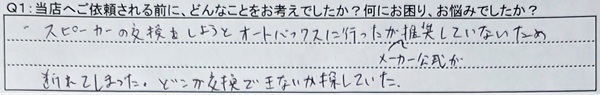 Q1:当店へご依頼される前に、どんなことをお考えでしたか？何にお困り、お悩みでしたか？
・スピーカーの交換をしようとオートバックスに行ったが推奨していないため
メーカー公式が
断れてしまった。どこか交換できないか探していた。